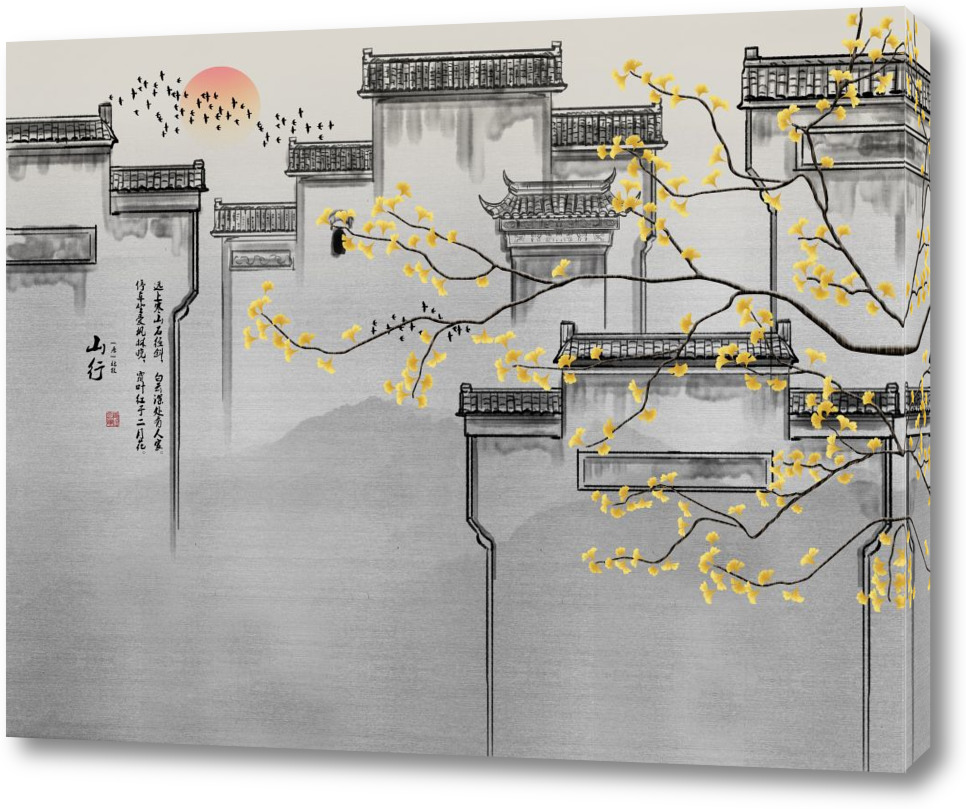 远上寒山石径斜，白云深处有人家。
停车坐爱枫林晚，霜叶红于二月花。
（唐）杜牧
山行